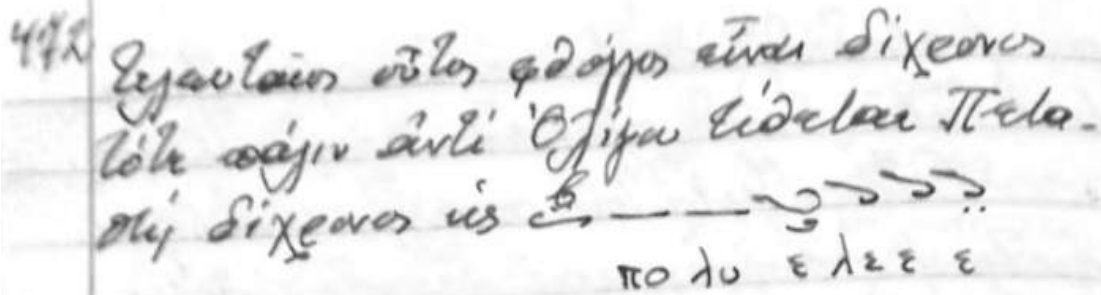 472 τελευταῖος οὗτος φθόγγος εἶναι δίχρονος
τότε πάλιν ἀντί Ὀλίγου τίθεται Πετα-
στή δίχρονος ὡς
πο λυ ε λε ε ε